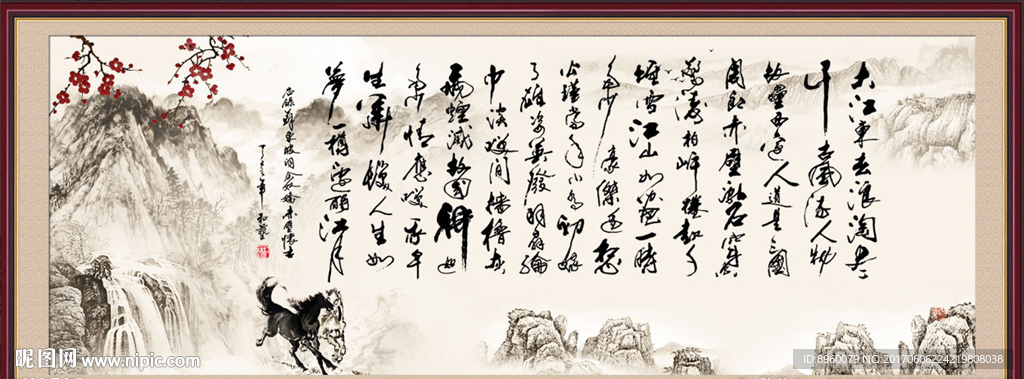 大江東去浪淘盡
千古風流人物
故壘西邊人道是三國
周郎赤壁亂石穿空
驚濤拍岸捲起千
堆雪江山如畫一時
多少豪傑遥想
公瑾當年小喬初嫁
了雄姿英發羽扇綸
巾談笑間檣櫓灰
飛煙滅故國神
多情應笑我早
生華髮人生如
夢一樽還酹江月
蘇東坡詞念奴嬌赤壁懷古
昵图网 www.nipic.com
ID:8960079 NO:20170606224219808038